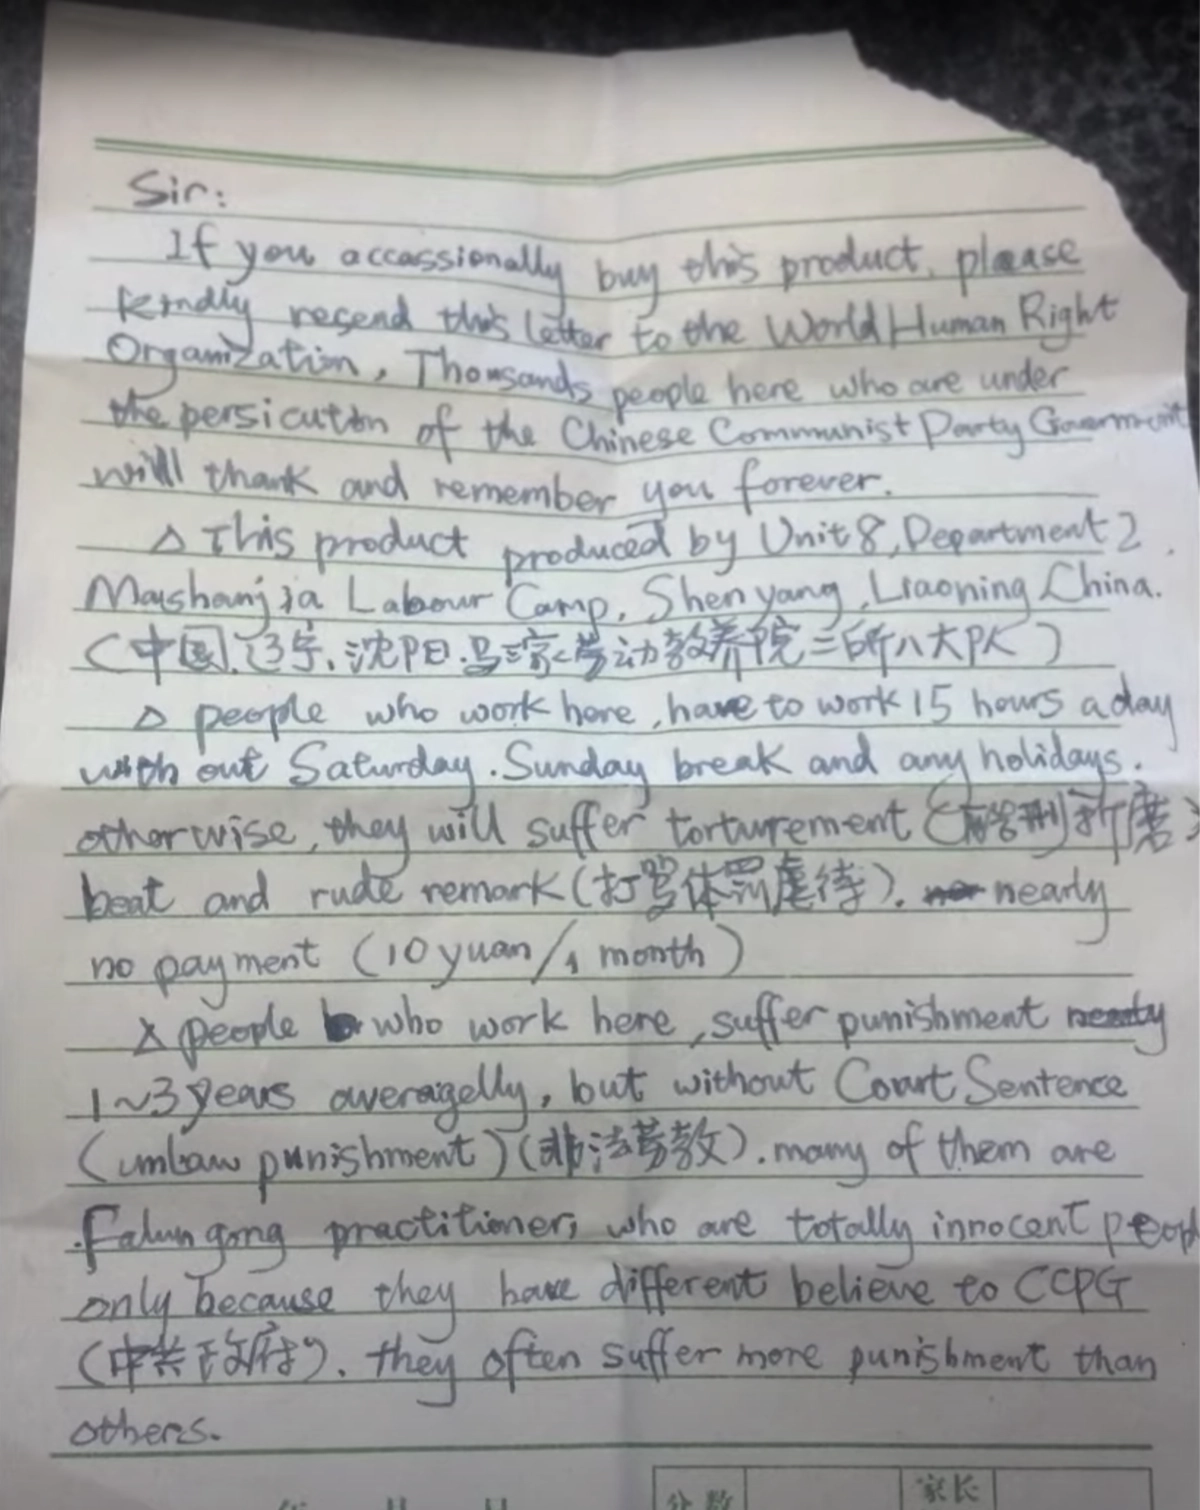 Sir:
If you occassionally buy this product, please
kindly resend this letter to the World Human Right
Organization, Thousands people here who are under
the persicution of the Chinese Communist Party Government
will thank and remember you forever.
△ This product produced by Unit 8, Department 2
Mashanjia Labour Camp, Shenyang, Liaoning, China.
(中国.辽宁.沈阳.马三家劳动教养院二所八大队)
△ people who work here, have to work 15 hours a day
with out Saturday. Sunday break and any holidays.
otherwise, they will suffer torturement (折磨)
beat and rude remark (打骂体罚虐待). nearly
no payment (10 yuan/1 month)
△ people who work here, suffer punishment nearly
1~3 years averagelly, but without Court Sentence
(unlaw punishment) (非法劳教). many of them are
Falun gong practitioner, who are totally innocent peopl
only because they have different believe to CCPG
(中共政府). they often suffer more punishment than
others.
分数 家长